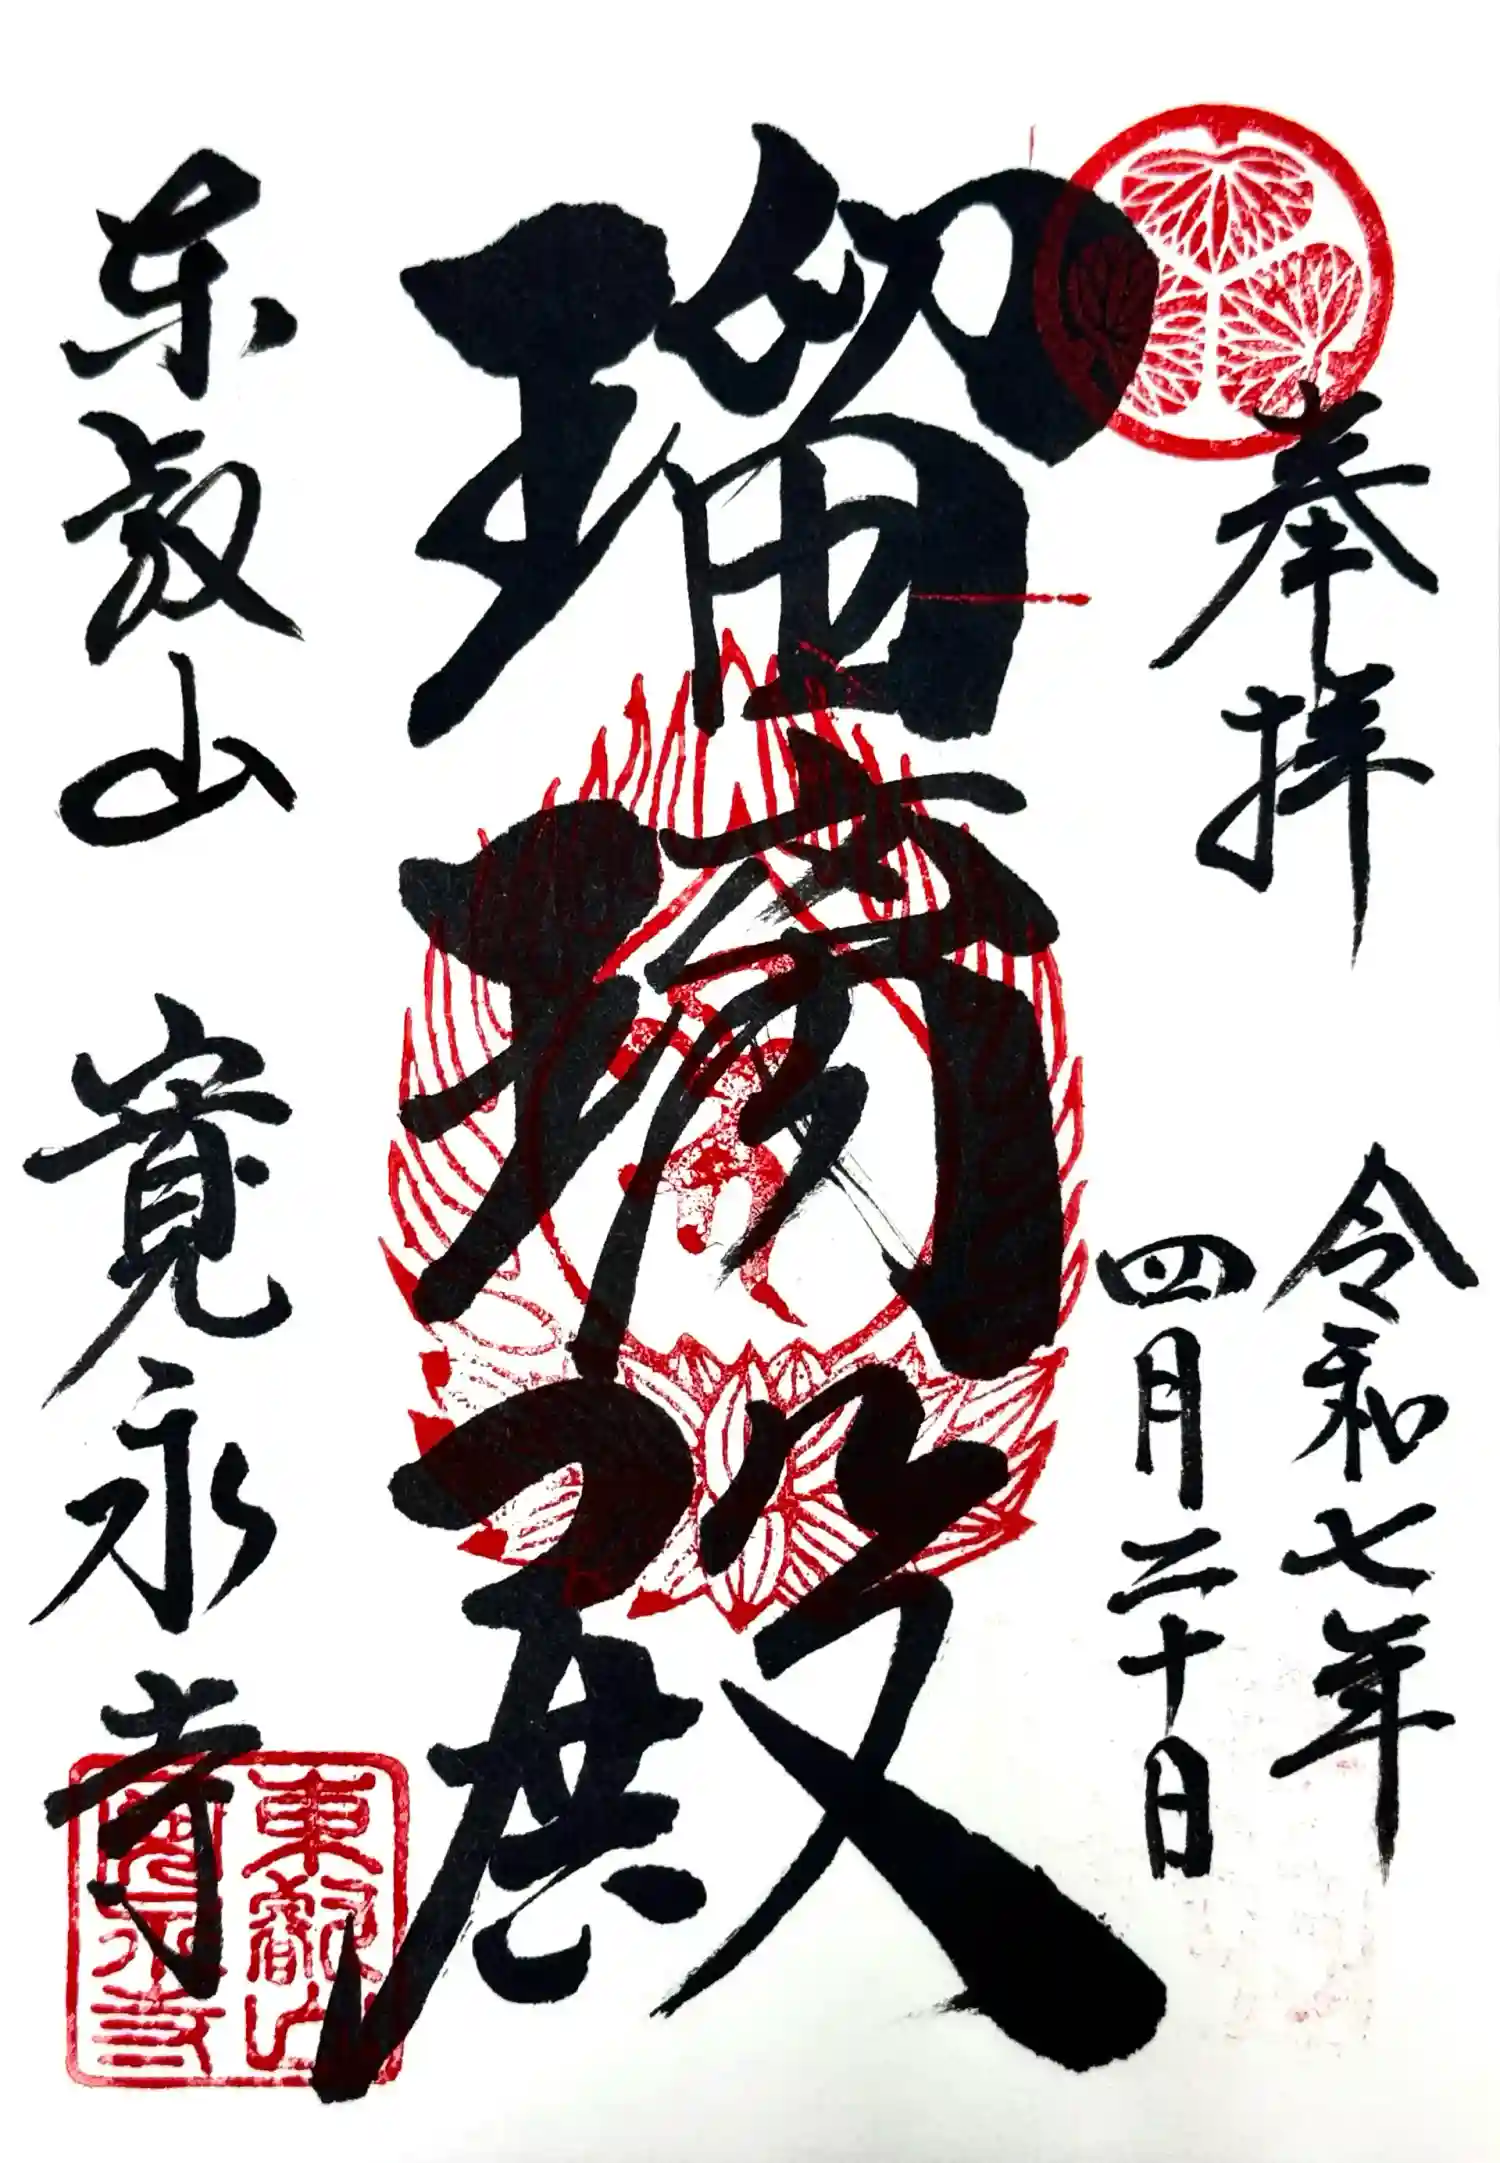 奉拝
令和七年
四月二十日
瑠璃殿
東叡山 寛永寺
東叡山
寛永寺